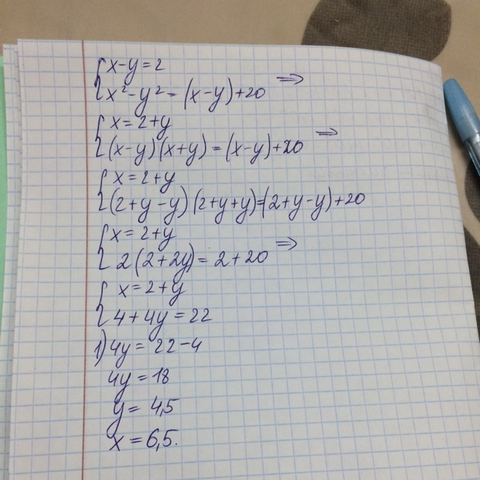 { x-y=2
{ x²-y²=(x-y)+20 ⇒
{ x=2+y
{ (x-y)(x+y)=(x-y)+20 ⇒
{ x=2+y
{ (2+y-y)(2+y+y)=(2+y-y)+20
{ x=2+y
{ 2(2+2y)=2+20 ⇒
{ x=2+y
{ 4+4y=22
1) 4y=22-4
4y=18
y=4,5
x=6,5.